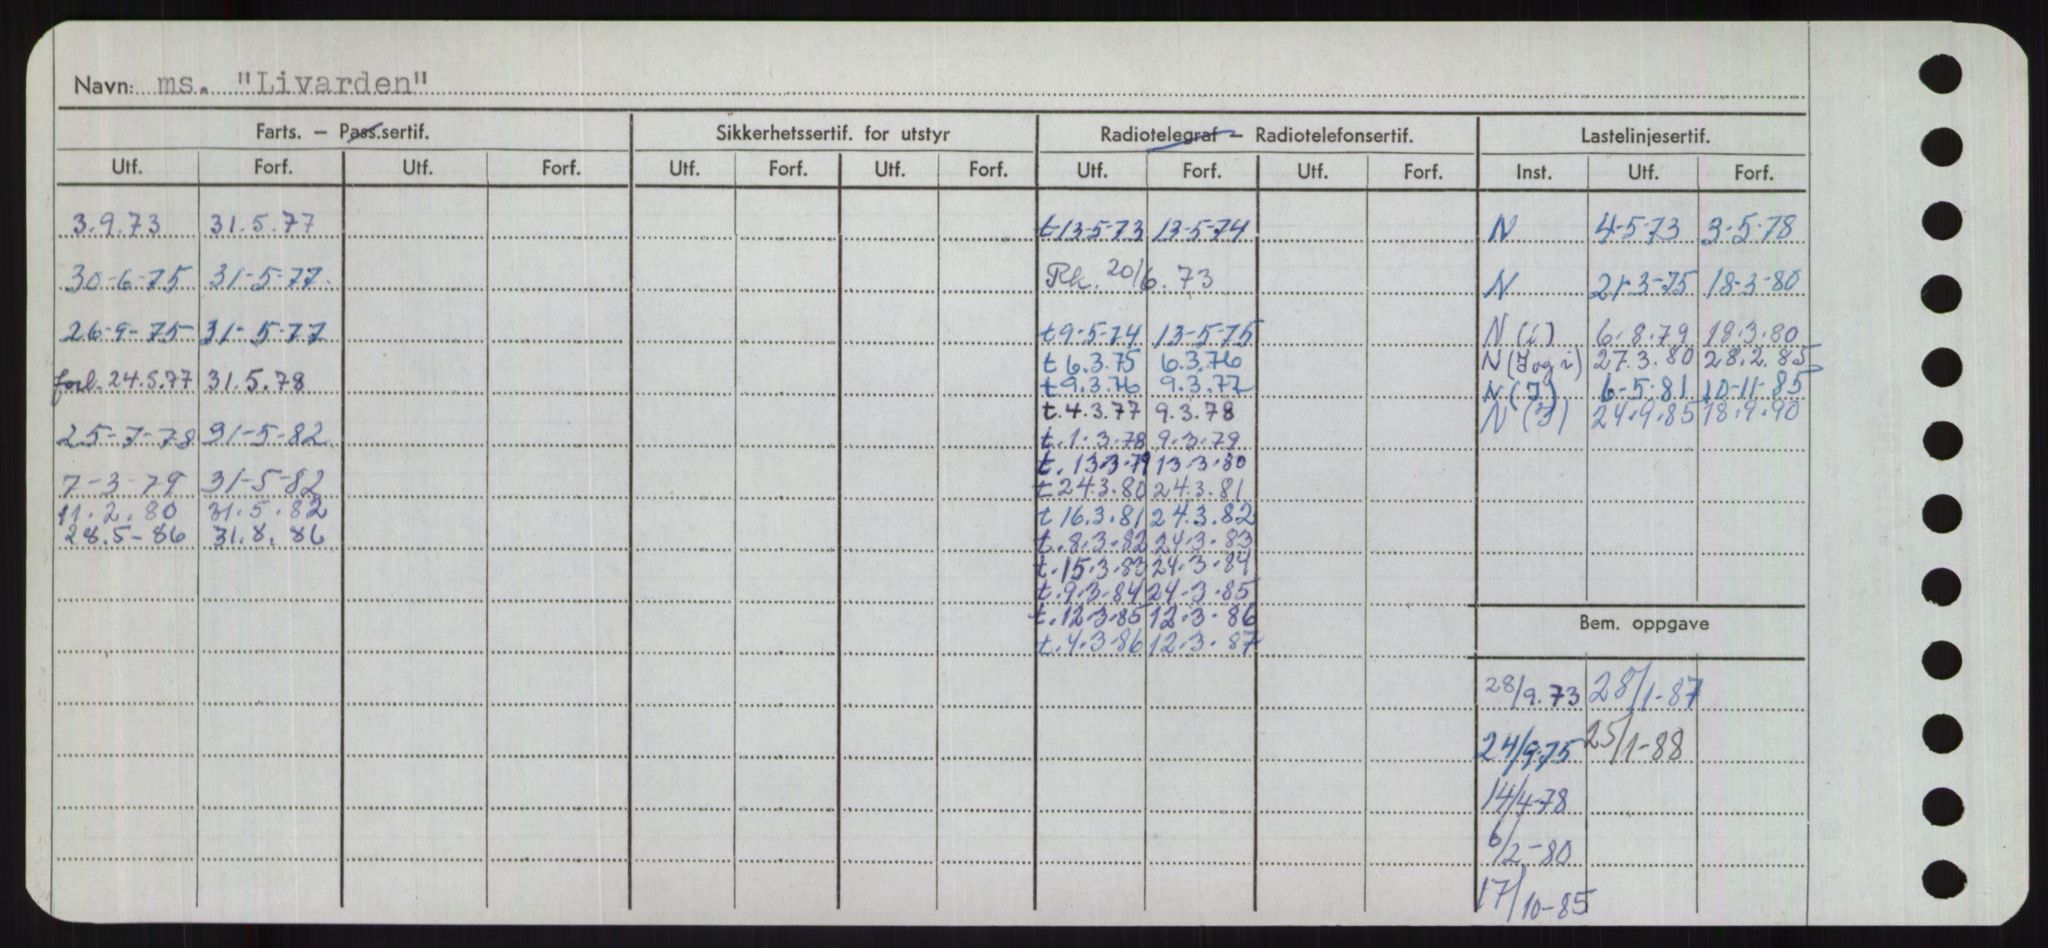 Navn: ms. "Livarden"
Farts. – Pass.sertif. Sikkerhetssertif. for utstyr Radiotelegraf – Radiotelefonsertif. Lastelinjesertif.
Utf. Forf. Utf. Forf. Utf. Forf. Utf. Forf. Utf. Forf. Utf. Forf. Inst. Utf. Forf.
3.9.73 31.5.77 t 13-5-73 13-5-74 N 4-5-73 3-5-78
30-6-75 31-5-77. Rk. 20/6.73 N 21-3-75 18-3-80
26-9-75 31-5-77 t 9-5-74 13-5-75 N (i) 6.8.79 18.3.80
t 6.3.75 6.3.76 N (I og i) 27.3.80 28.2.85
forl. 24.5.77 31.5.78 t 9.3.76 9.3.77 N (I) 6-5-81 10-11-85
t. 4.3.77 9.3.78 N (I) 24.9.85 18.9.90
25-7-78 31-5-82 t. 1.3.78 9.3.79
t. 13.3.79 13.3.80
7-3-79 31-5-82 t 24.3.80 24.3.81
11.2.80 31.5.82 t 16.3.81 24.3.82
28.5-86 31.8.86 t. 8.3.82 24.3.83
t. 15.3.83 24.3.84
t. 9.3.84 24.3.85
t. 12.3.85 12.3.86
t. 4.3.86 12.3.87
Bem. oppgave
28/9.73 28/1-87
24/9.75 25/1-88
14/4-78
6/2-80
17/10-85